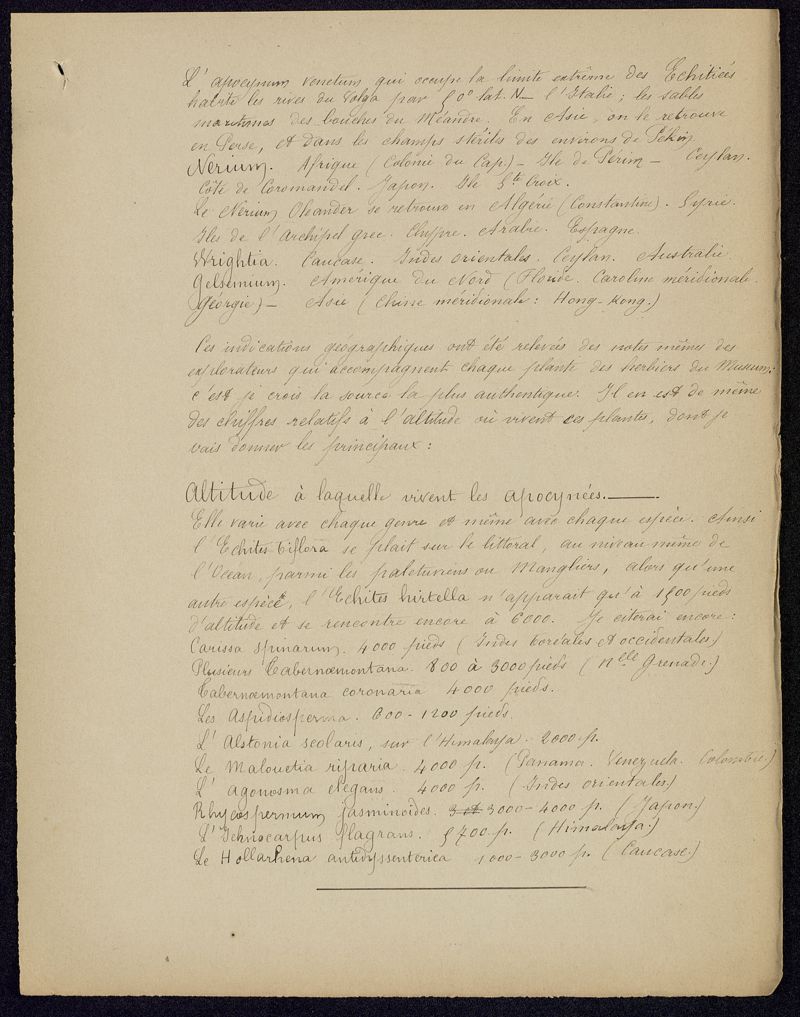 L'apocynum venetum qui occupe la limite extrême des Echitiées
habite les rives du Volga par 50° lat. N_ l'Italie ; les sables
maritimes des bouches du Méandre. En Asie, on le retrouve
en Perse, et dans les champs stérils des environs de Pékin
Nerium. Afrique (Colonie du Cap) _ Ile de Périm _ Ceylan.
Côte de Coromandel. Japon. Ile Ste Croix.
Le Nerium Oleander se retrouve en Algérie (Constantine). Syrie.
Iles de l'Archipel grec. Chypre. Arabie. Espagne.
Wrightia. Caucase. Indes orientales. Ceylan. Australie.
Gelsemium. Amérique du Nord (Floride. Caroline méridionale.
Géorgie) _ Asie (Chine méridionale : Hong-Kong.)
Ces indications géographiques ont été relevées des notes mêmes des
explorateurs qui accompagnent chaque plante des herbiers du Museum :
c'est je crois la source la plus authentique. Il en est de même
des chiffres relatifs à l'altitude où vivent ces plantes, dont je
vais donner les principaux :
Altitude à laquelle vivent les apocynées.____.
Elle varie avec chaque genre et même avec chaque espèce. Ainsi
l'Echites biflora se plait sur le littoral, au niveau même de
l'Océan, parmi les palétuviers ou Mangliers, alors qu'une
autre espèce, l'Echites hirtella n'apparait qu'à 1500 pieds
d'altitude et se rencontre encore à 6000. Je citerai encore :
Carissa spinarum. 4000 pieds (Indes boréales et occidentales)
Plusieurs Tabernæmontana. 800 à 3000 pieds (Nelle Grenade.)
Tabernæmontana coronaria 4000 pieds.
Les Aspidiosperma. 600-1200 pieds.
L'Alstonia scolaris, sur l'Himalaya. 2000 p.
Le Malouetia riparia. 4000 p. (Panama. Venezuela. Colombie.)
L'Agonosma elegans. 4000 p. (Indes orientales.)
Rhyncospermum jasminoides. 3 et 3000-4000 p. (Japon.)
L'Ichnocarpus flagrans. 5700 p. (Himalaya.)
Le Hollarhena antidyssenterica 1000-3000 p. (Caucase.)